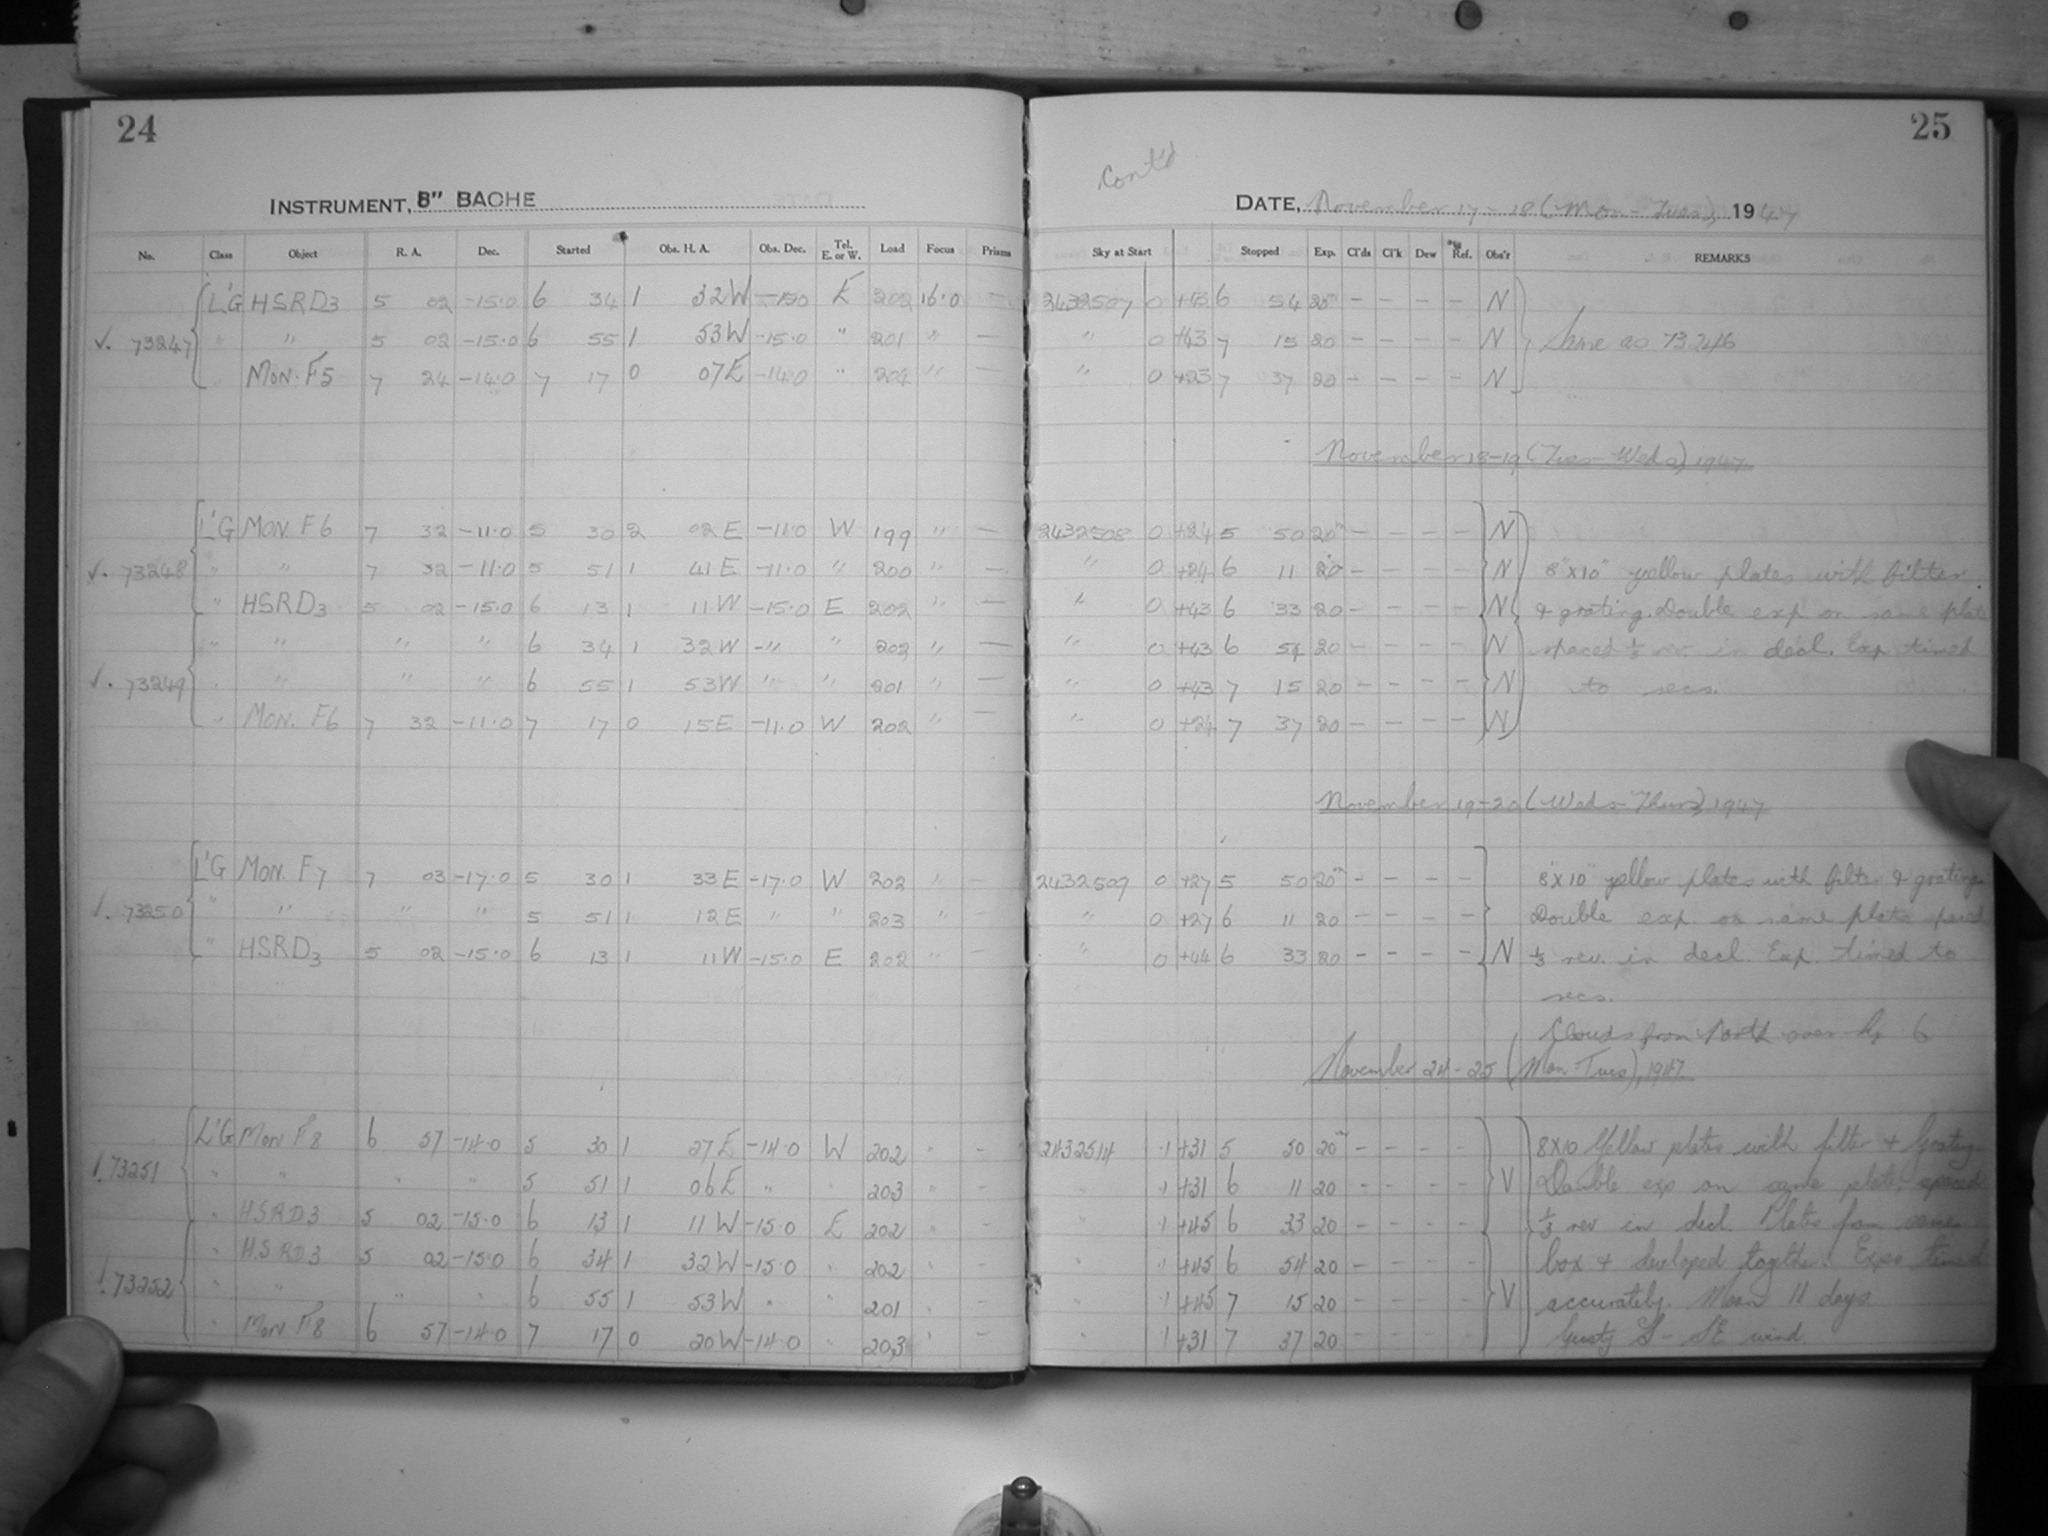 24
INSTRUMENT, 8" BACHE
No. Class Object R. A. Dec. Started Obs. H. A. Obs. Dec. Tel. E. or W. Load Focus Prisms
L'G HSRD3 5 02 -15.0 6 34 1 32W -15.0 E 202 16.0 —
✓. 73247 " " 5 02 -15.0 6 55 1 53W -15.0 " 201 " —
" MON. F5 7 24 -14.0 7 17 0 07E -14.0 " 204 " —
L'G MON. F6 7 32 -11.0 5 30 2 02E -11.0 W 199 " —
✓. 73248 " " 7 32 -11.0 5 51 1 41E -11.0 " 200 " —
" HSRD3 5 02 -15.0 6 13 1 11W -15.0 E 202 " —
" " " " 6 34 1 32W -" " 202 " —
✓. 73249 " " " " 6 55 1 53W " " 201 " —
" MON. F6 7 32 -11.0 7 17 0 15E -11.0 W 202 " —
L'G MON. F7 7 03 -17.0 5 30 1 33E -17.0 W 202 " -
✓. 73250 " " " " 5 51 1 12E " " 203 " -
" HSRD3 5 02 -15.0 6 13 1 11W -15.0 E 202 " -
L'G Mon F8 6 57 -14.0 5 30 1 27E -14.0 W 202 " -
✓. 73251 " " " " 5 51 1 06E " " 203 " -
" HSRD3 5 02 -15.0 6 13 1 11W -15.0 E 202 " -
" HSRD3 5 02 -15.0 6 34 1 32W -15.0 " 202 " -
✓. 73252 " " " " 6 55 1 53W " " 201 " -
" Mon F8 6 57 -14.0 7 17 0 20W -14.0 " 203 " -
25
Cont'd
DATE, November 17-18 (Mon-Tues), 1947
Sky at Start Stopped Exp. Cl'ds Cl'k Dew Ref. Obs'r REMARKS
2432507 0 +43 6 54 20m - - - - N
" 0 +43 7 15 20 - - - - N Same as 73246
" 0 +23 7 37 20 - - - - N
November 18-19 (Tues-Weds) 1947
2432508 0 +24 5 50 20m - - - - N
" 0 +24 6 11 20 - - - - N 8"x10" yellow plates with filter
" 0 +43 6 33 20 - - - - N & grating. Double exp on same plate
" 0 +43 6 54 20 - - - - N spaced 1/3 rev. in decl. Exp timed
" 0 +43 7 15 20 - - - - N to secs.
" 0 +24 7 37 20 - - - - N
November 19-20 (Weds-Thurs), 1947
2432509 0 +27 5 50 20m - - - - 8"x10" yellow plates with filter & grating.
" 0 +27 6 11 20 - - - - Double exp. on same plate spaced
" 0 +44 6 33 20 - - - - N 1/3 rev. in decl. Exp. timed to
secs.
Clouds from North over by 6
November 24-25 (Mon-Tues), 1947
2432514 .1 +31 5 50 20m - - - - 8X10 Yellow plates with filter & Grating
" .1 +31 6 11 20 - - - - V Double exp on same plate, spaced
" .1 +45 6 33 20 - - - - 1/3 rev in decl. Plates from same
" .1 +45 6 54 20 - - - - box & developed together. Expo timed
" .1 +45 7 15 20 - - - - V accurately. Moon 11 days
" .1 +31 7 37 20 - - - - Gusty S-SE wind.